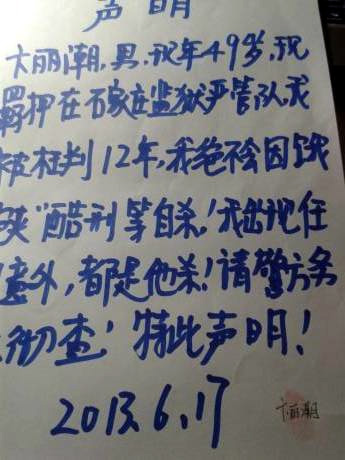 声明
卞丽潮,男.现年49岁,现
羁押在石家庄监狱严管队我
被枉判12年,我绝不会因饿
"酷刑等自杀!我出现任
意外,都是他杀!请警方务
彻查!特此声明!
2013.6.17
卞丽潮